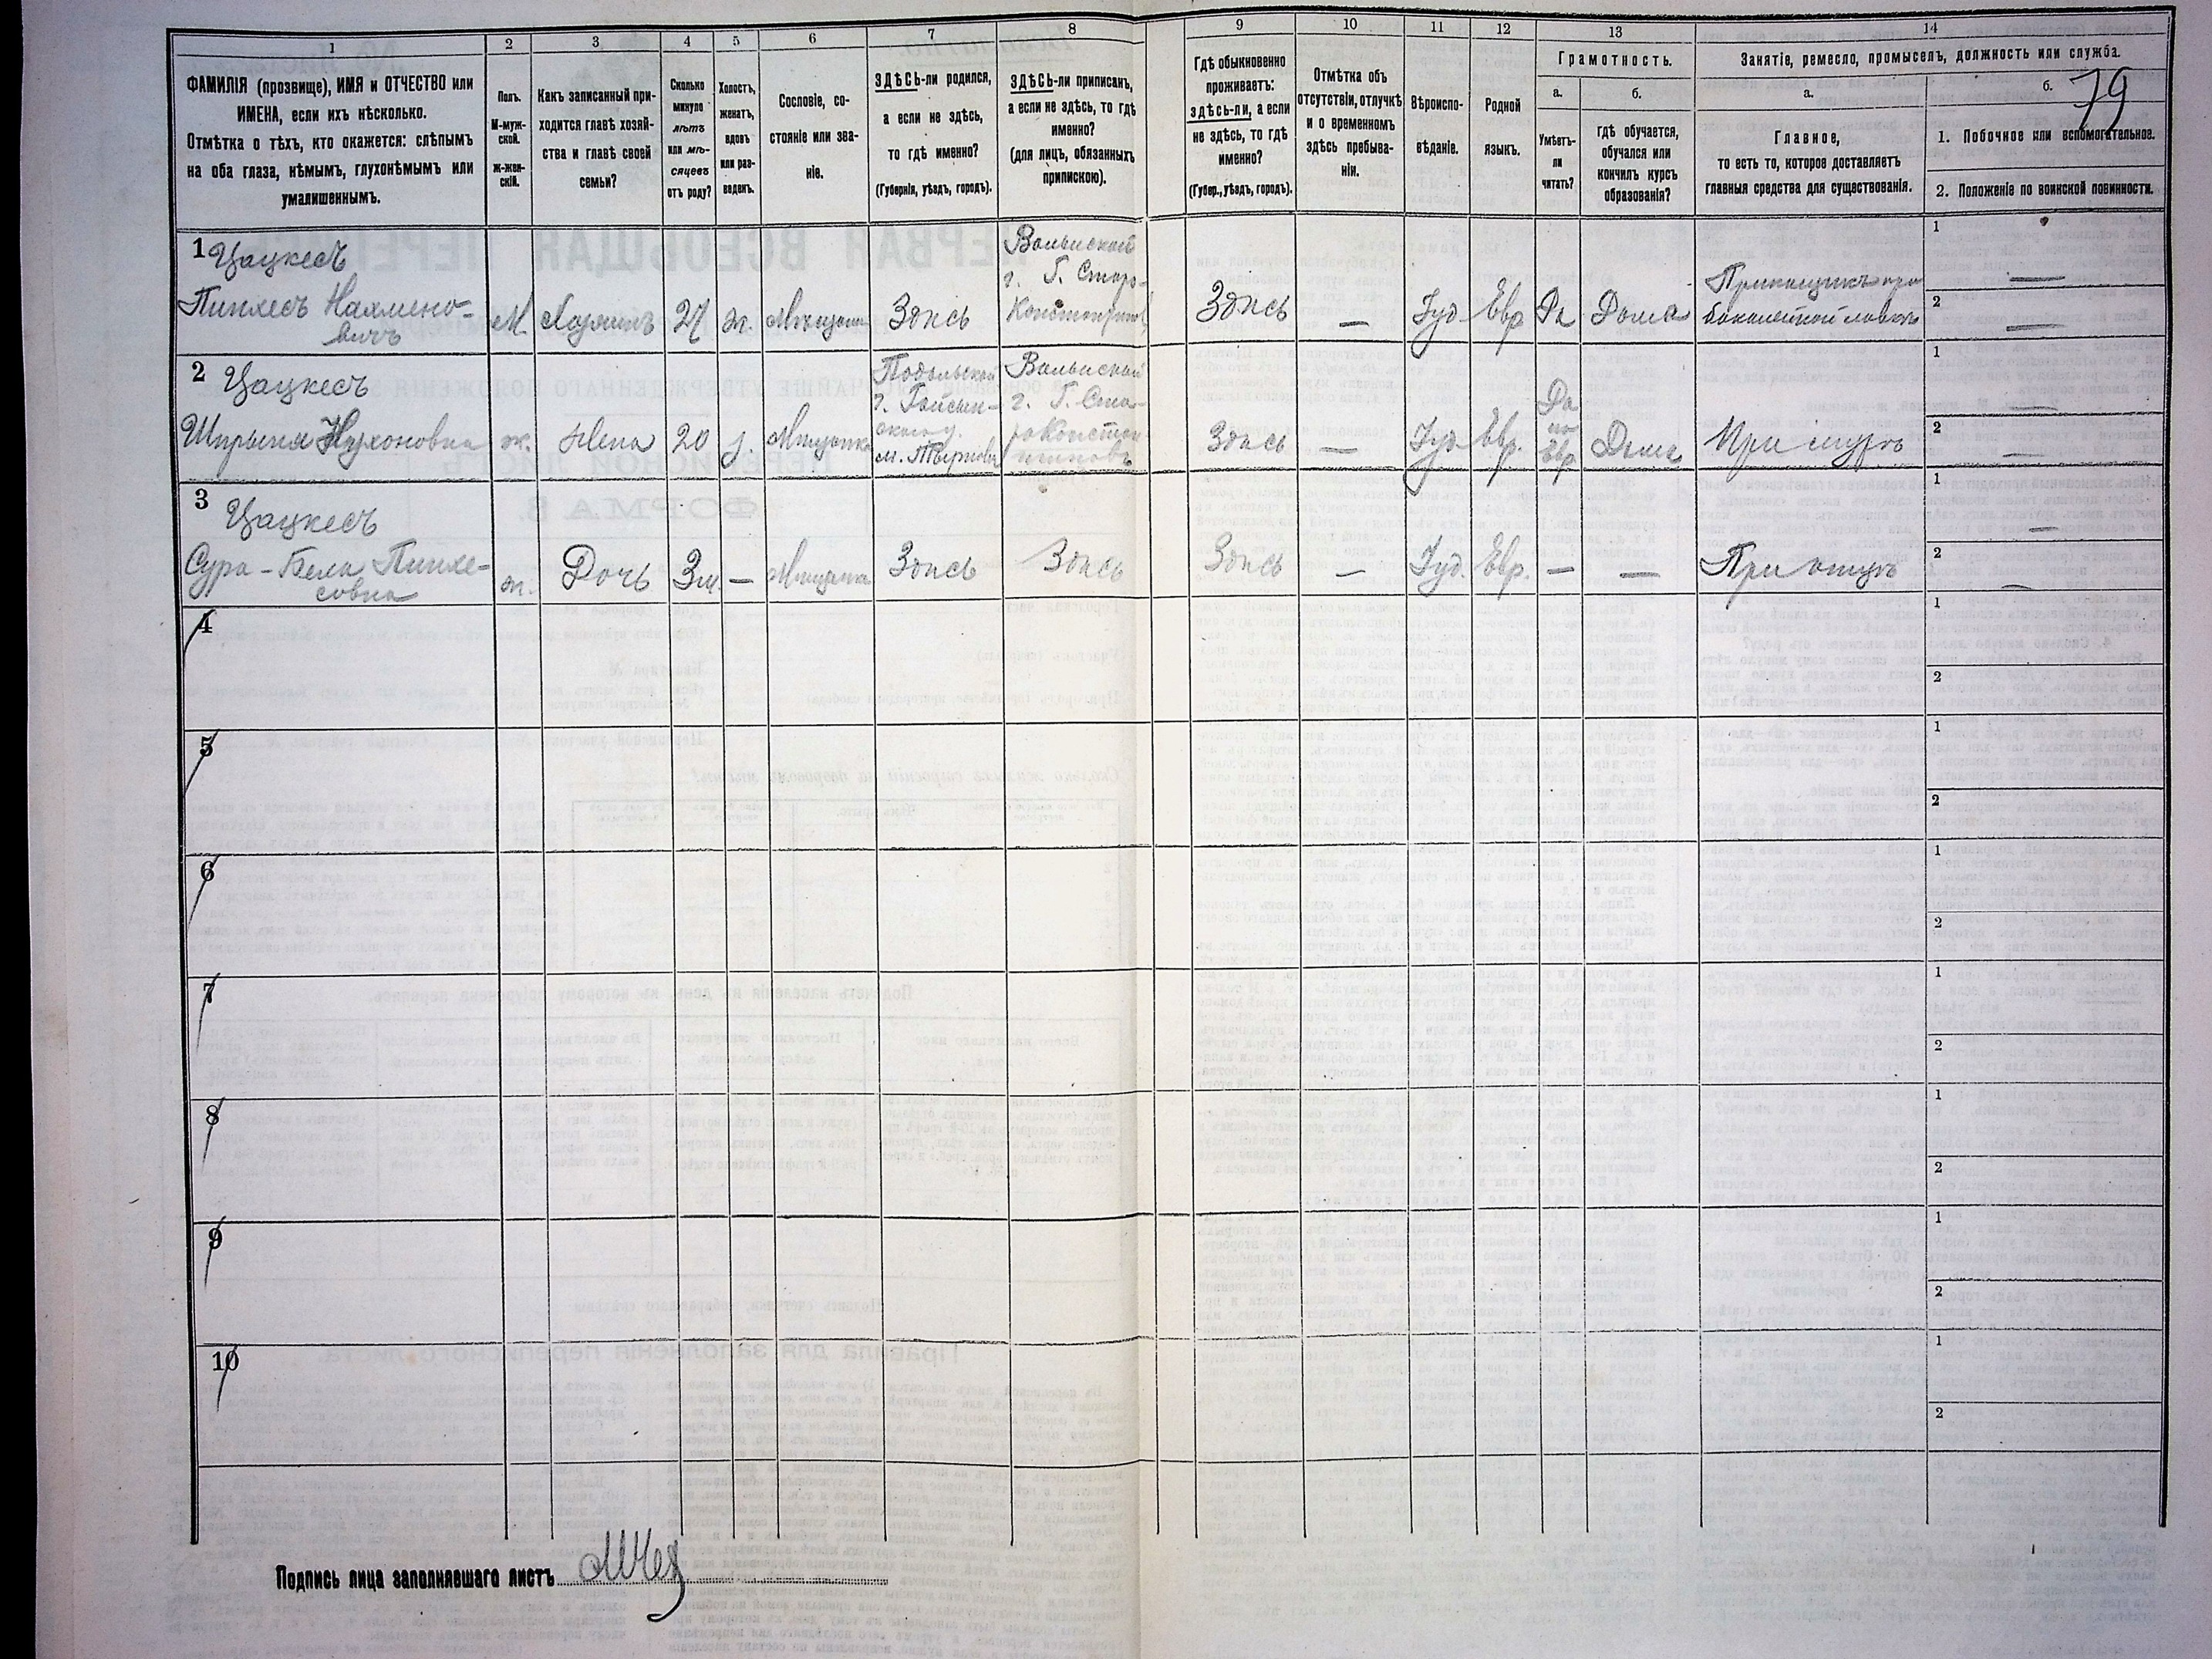 1 2 3 4 5 6 7 8 9 10 11 12 13 14
ФАМИЛІЯ (прозвище), ИМЯ и ОТЧЕСТВО или
ИМЕНА, если ихъ нѣсколько.
Отмѣтка о тѣхъ, кто окажется: слѣпымъ
на оба глаза, нѣмымъ, глухонѣмымъ или
умалишеннымъ.
Полъ.
М-муж-
ской.
Ж-жен-
скій.
Какъ записанный при-
ходится главѣ хозяй-
ства и главѣ своей
семьи?
Сколько
минуло
лѣтъ
или мѣ-
сяцевъ
отъ роду?
Холостъ,
женатъ,
вдовъ
или раз-
веденъ.
Сословіе, со-
стояніе или зва-
ніе.
ЗДѢСЬ-ли родился,
а если не здѣсь,
то гдѣ именно?
(Губернія, уѣздъ, городъ).
ЗДѢСЬ-ли приписанъ,
а если не здѣсь, то гдѣ
именно?
(для лицъ, обязанныхъ
припискою).
Гдѣ обыкновенно
проживаетъ:
здѣсь-ли, а если
не здѣсь, то гдѣ
именно?
(Губер., уѣздъ, городъ).
Отмѣтка объ
отсутствіи, отлучкѣ
и о временномъ
здѣсь пребыва-
ніи.
Вѣроиспо-
вѣданіе.
Родной
языкъ.
Грамотность.
а.
Умѣетъ-
ли
читать?
б.
гдѣ обучается,
обучался или
кончилъ курсъ
образованія?
Занятіе, ремесло, промыселъ, должность или служба.
а.
Главное,
то есть то, которое доставляетъ
главныя средства для существованія.
б.
79
1. Побочное или вспомогательное.
2. Положеніе по воинской повинности.
1 Цацкесъ
Пинхесъ Нахмено-
вичъ
М. Хозяинъ 27 ж. Мѣщанин Здѣсь
Волынской
г. Г. Старо-
Константинов
Здѣсь — Іуд Евр Да Дома
Прикащикъ при
бакалейной лавкѣ
1 —
2 —
2 Цацкесъ
Шпрынця Нухоновна
ж. Жена 20 з. Мѣщанка
Подольской
г. Гайсин-
скаго у.
Волынской
г. Г. Ста-
роКонстан
тиновъ
Здѣсь — Іуд Евр.
Да
по
Евр
Дома При мужѣ
1
2 —
3 Цацкесъ
Сура-Бела Пинхе-
совна
ж. Дочь 3м. — Мѣщанка Здѣсь Здѣсь Здѣсь — Іуд. Евр. — — При отцѣ
1 —
2 —
4
1
2
5
1
2
6
1
2
7
1
2
8
1
2
9
1
2
10
1
2
Подпись лица заполнявшаго листъ